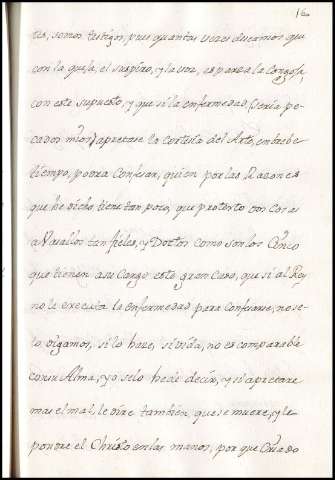 16
tes, somos testigos, pues quantas veces deseamos que
con la quexa, el suspiro, y la voz, esparza la Congoja,
con este supuesto, y que si la enfermedad (seria pe-
cados mios) apretase la cortesia del Arte, en tan breve
tiempo, podra Confesar, quien por las Razones
que he dicho tiene tan poco, que protesto con Cosas
a Vasallos tan fieles, y Doctos como son los Cinco
que tienen a su Cargo este gran Caso, que si al Rey
no le executa la enfermedad para Confesarse, no se
lo digamos, si lo hace, si vida, no es comparable
con su Alma, yo se lo hede decir, y si apretare
mas el mal, le dire tambien, que se muere, y le
pondre el Christo en las manos, por que Criado